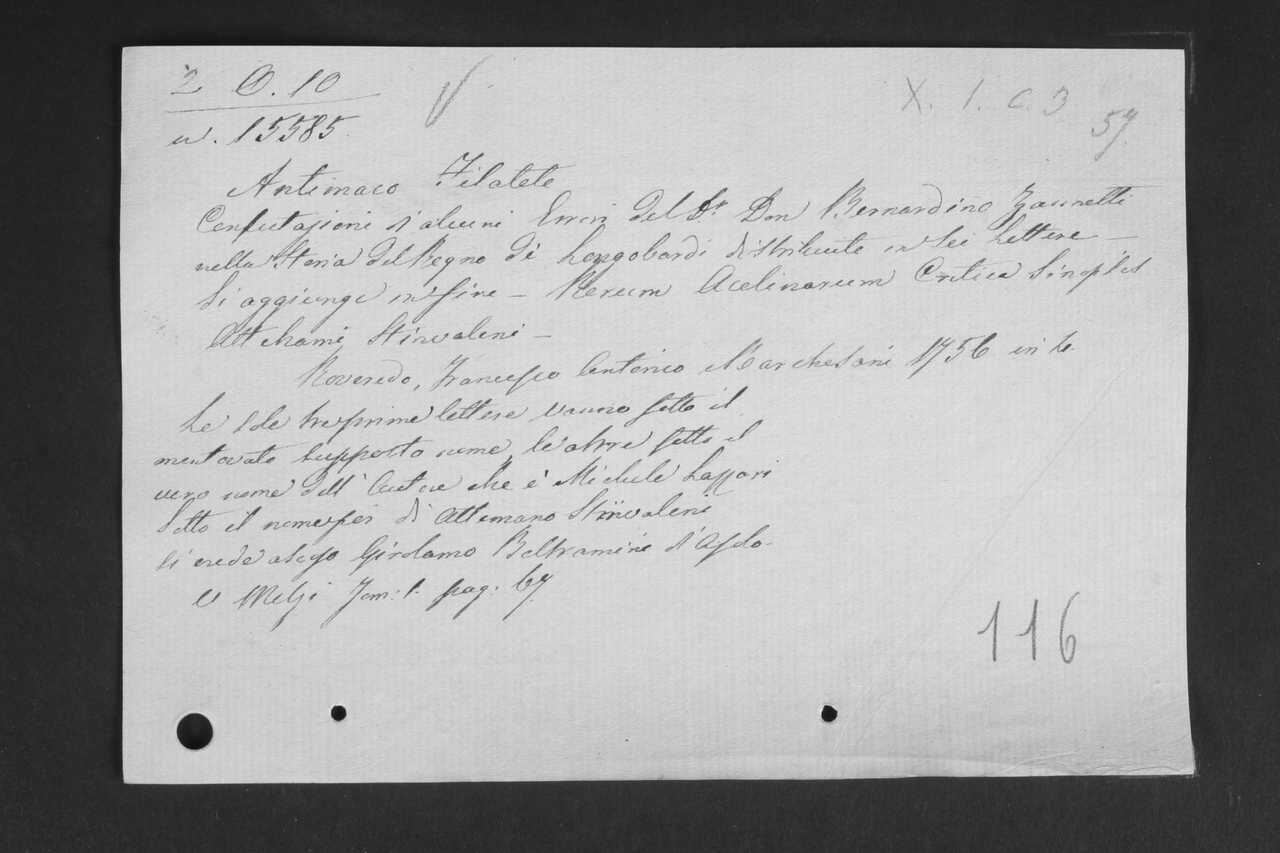 2 O. 10
X. 1. C. 3
57
n. 15585
Antimaco Filalete
Confutazioni d'alcuni Errori del Sr. Don Bernardino Zannetti
nella Storia del Regno de' Longobardi distribuite in sei Lettere —
Si aggiunge in fine — Rerum Acelinarum Critica Sinopsis
Attchami Stinvaleni —
Roveredo, Francesco Antonio Marchesani 1756 in 4.
Le sole tre prime lettere vanno sotto il
mentovato supposto nome, le altre sotto il
vero nome dell' Autore che è Michele Lazzari
Sotto il nome poi di Attimano Stinvaleni
si crede Girolamo Beltramini d'Asolo.
V Melzi Tom: 1. pag: 67
116